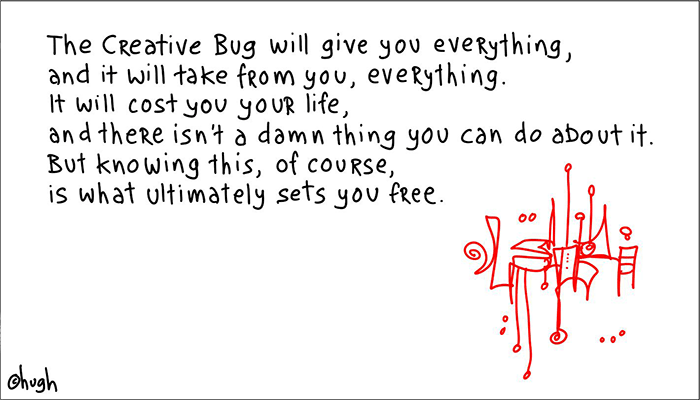 The Creative Bug will give you everything,
and it will take from you, everything.
It will cost you your life,
and there isn't a damn thing you can do about it.
But knowing this, of course,
is what ultimately sets you free.
©hugh